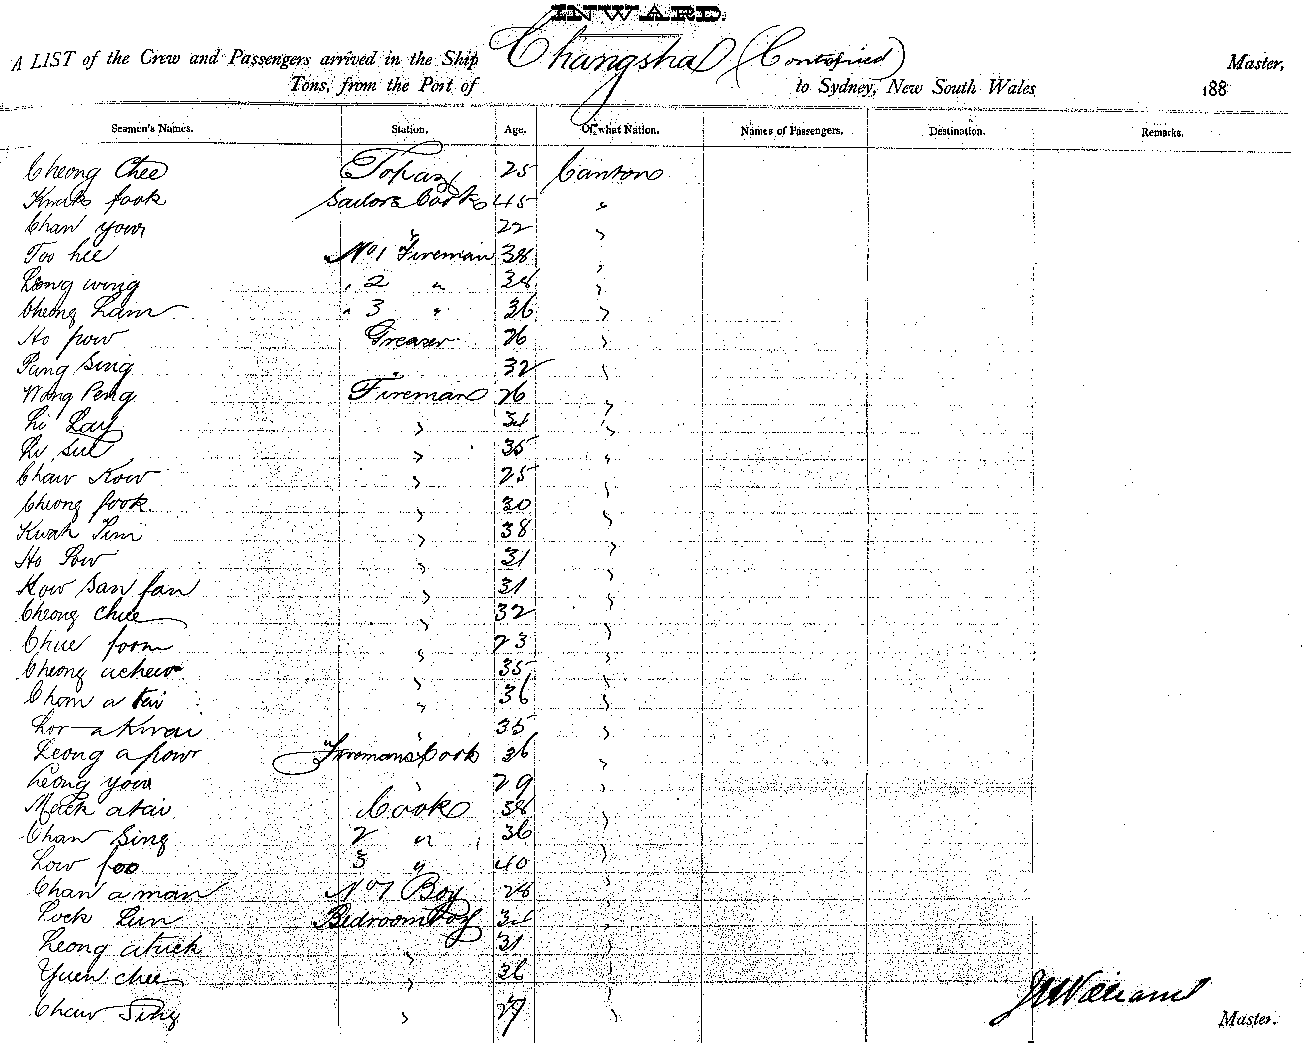 INWARD.
A LIST of the Crew and Passengers arrived in the Ship Changsha (Continued) Master,
Tons, from the Port of to Sydney, New South Wales 188
Seamen's Names. Station. Age. Of what Nation. Names of Passengers. Destination. Remarks.
Cheong Chee Topaz 25 Canton
Kwok fook Sailors Cook 45 "
Chan your " 22 "
Too hee No 1 Fireman 38 "
Leong wing " 2 " 38 "
Cheong Lam " 3 " 36 "
Ho pow Greaser 26 "
Pang Sing " 32 "
Wong Peng Fireman 26 "
Li Lay " 34 "
Li sue " 35 "
Chaw Kow " 25 "
Cheong fook " 30 "
Kwah Tim " 38 "
Ho Sow " 31 "
How San fan " 31 "
Cheong Chee " 32 "
Chue foom " 23 "
Cheong achew " 35 "
Chom a tai " 36 "
Lor a Kwai " 35 "
Leong a pow Firemans Cook 36 "
Leong your " 29 "
Mock atai Cook 38 "
Chaw Sing 2 " 36 "
Low foo 3 " 40 "
Chan a man No 1 Boy 28 "
Lock Lun Bedroom Boy 34 "
Leong atuck " 31 "
Yuen chee " 36 "
Chaw Sing " 27 "
J Williams
Master.